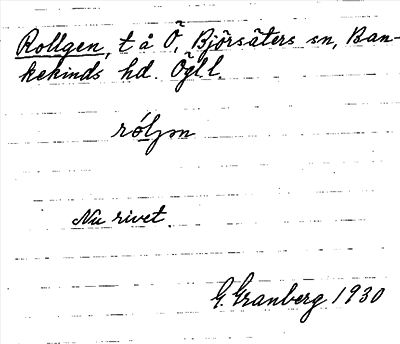 Rollgen, t å Ö, Björsäters sn, Ban-
kekinds hd. Ögtl.
Nu rivet.
G. Granberg 1930